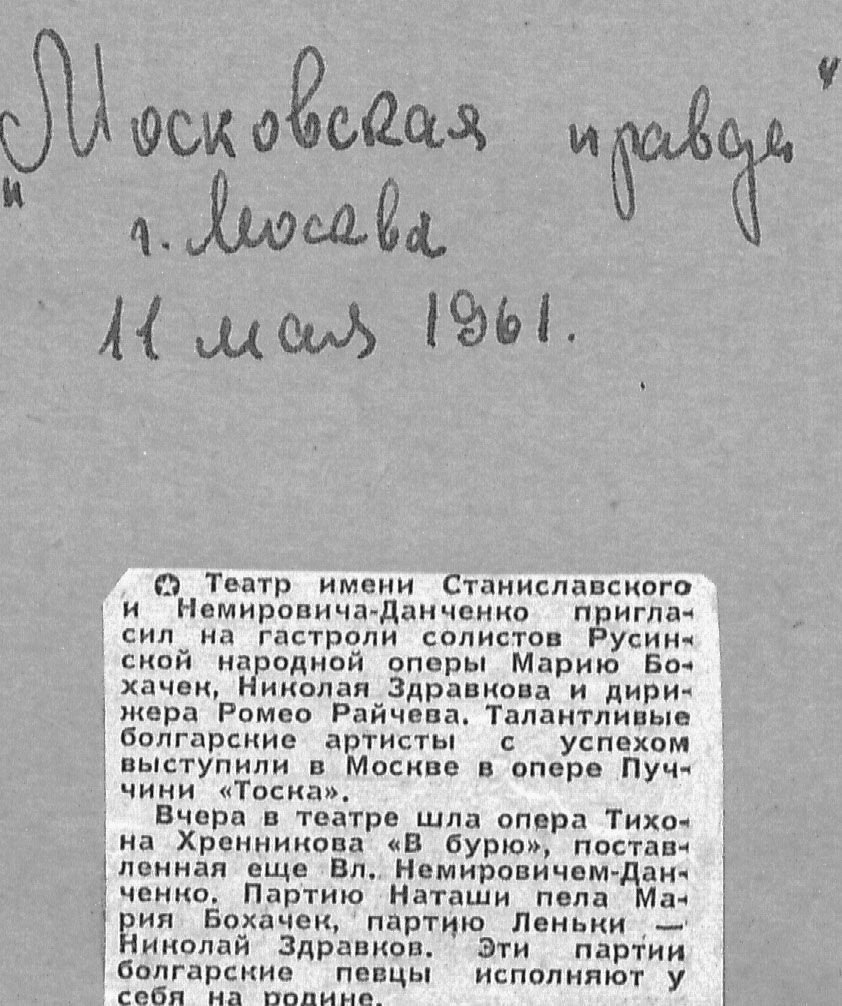 "Московская правда"
г. Москва
11 мая 1961.
✪ Театр имени Станиславского
и Немировича-Данченко пригла-
сил на гастроли солистов Русин-
ской народной оперы Марию Бо-
хачек, Николая Здравкова и дири-
жера Ромео Райчева. Талантливые
болгарские артисты с успехом
выступили в Москве в опере Пуч-
чини «Тоска».
Вчера в театре шла опера Тихо-
на Хренникова «В бурю», постав-
ленная еще Вл. Немировичем-Дан-
ченко. Партию Наташи пела Ма-
рия Бохачек, партию Леньки —
Николай Здравков. Эти партии
болгарские певцы исполняют у
себя на родине.